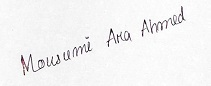 Mousumi Ara Ahmed